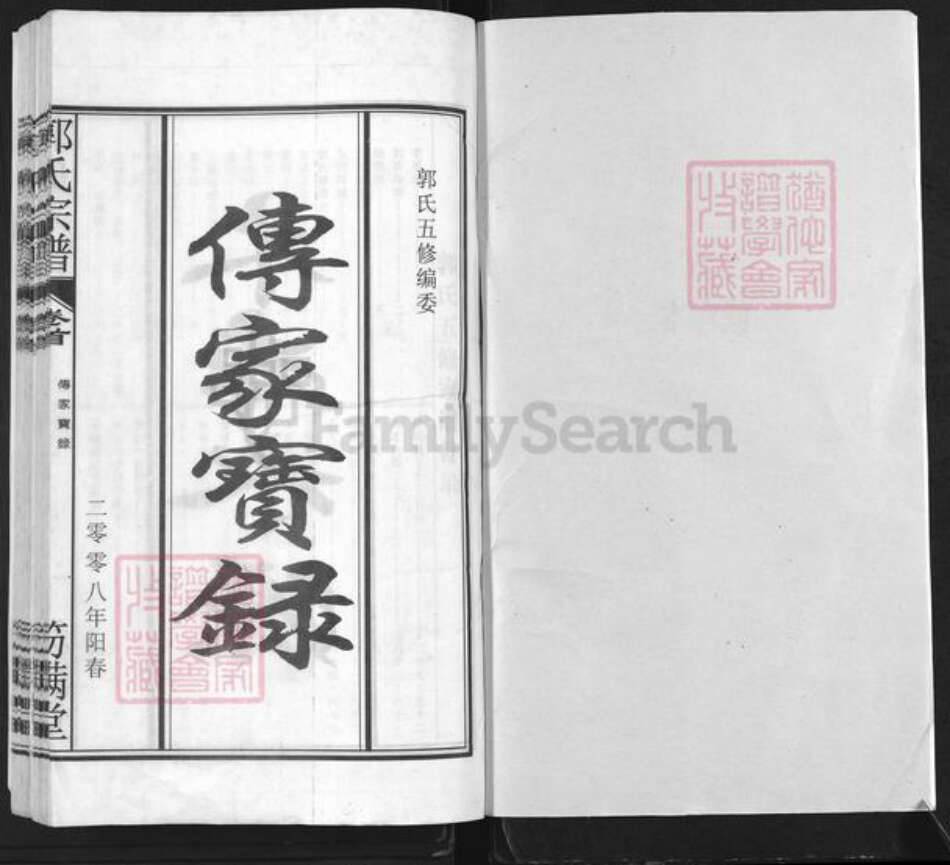 郭氏五修编委
傳家寶録
二零零八年阳春
郭氏宗譜
卷首
傳家寶録
笏满堂
譜學會
收藏
FamilySearch